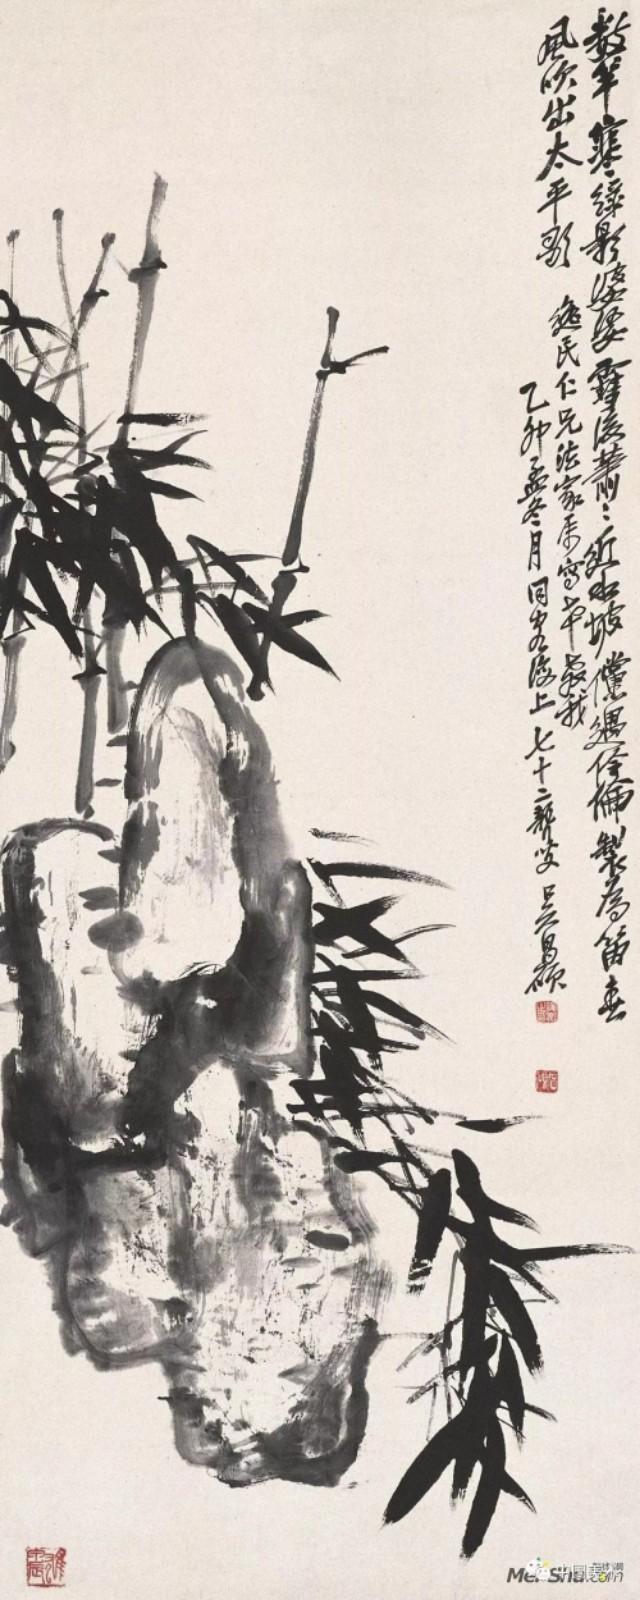 数竿寒绿影婆娑雪后萧〻近水坡傥遇伶伦製为笛春
风吹出太平歌
逸民仁兄法家属写即希教我
乙卯孟冬月同客海上七十二龄叟吴昌硕
中国美术